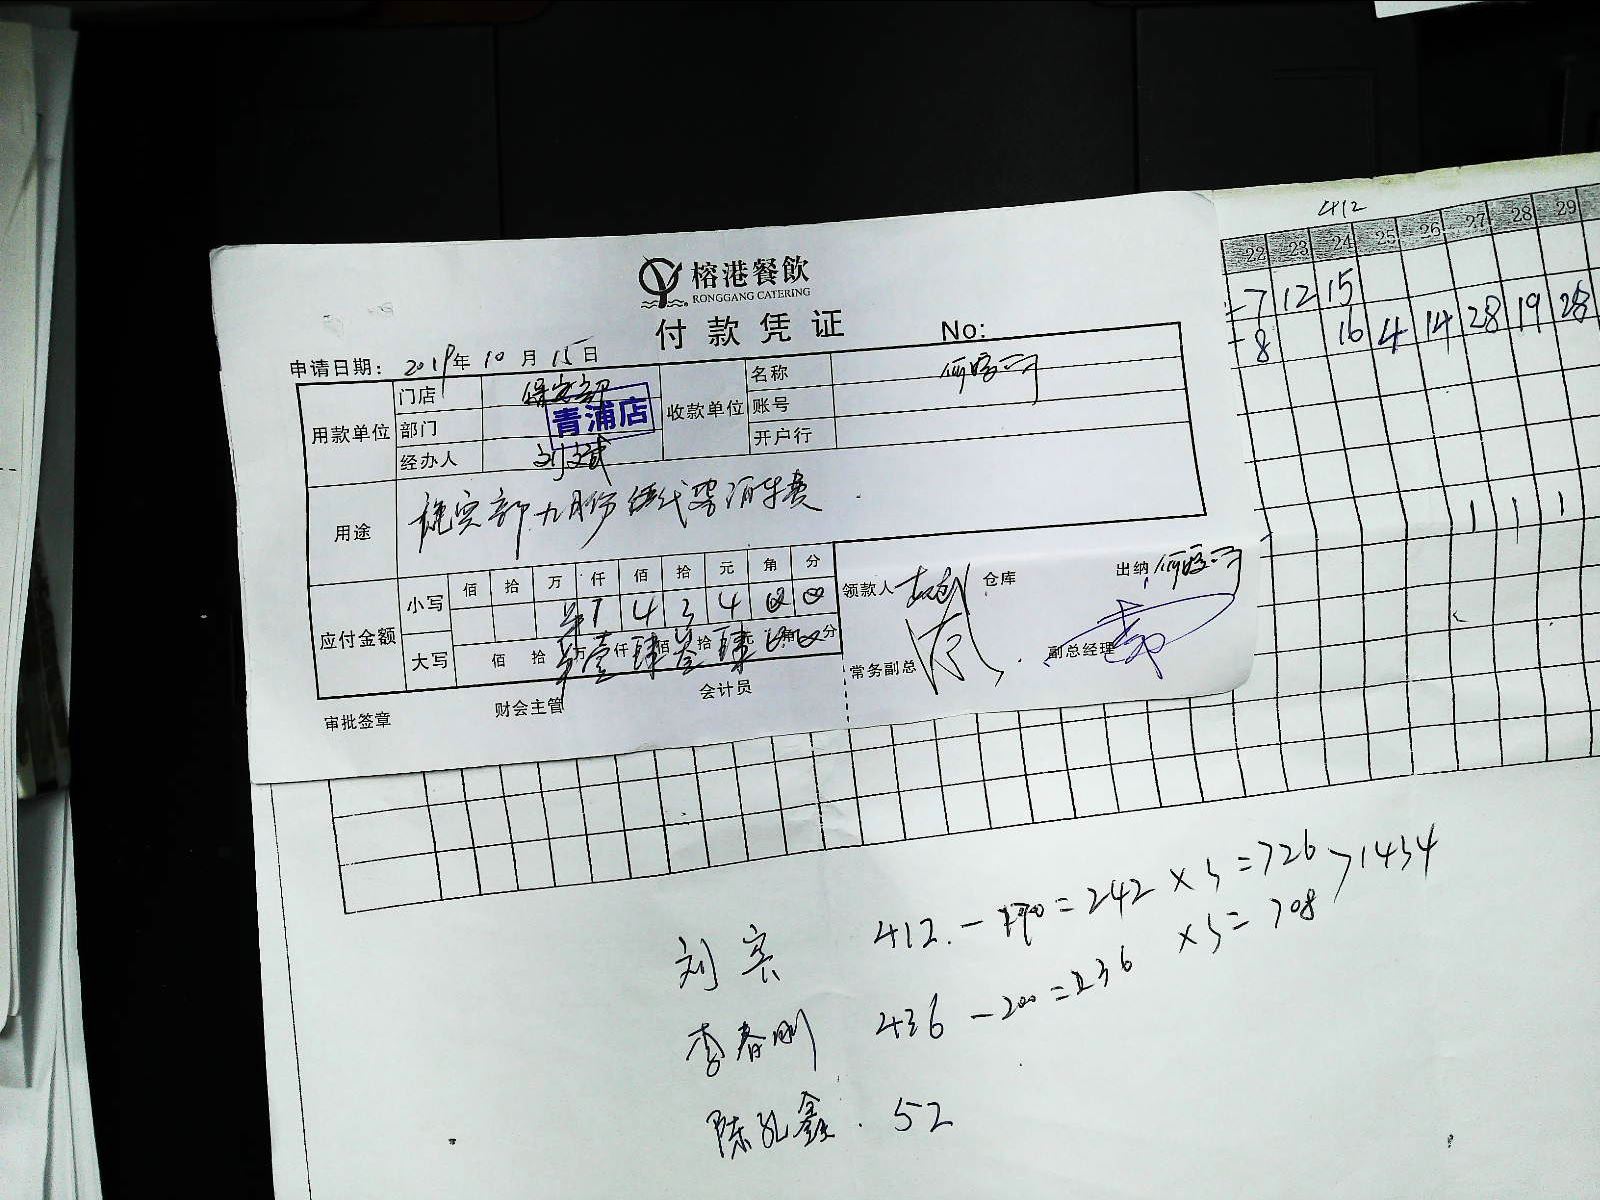 412
22 23 24 25 26 27 28 29
7 12 15
8 16 4 14 28 19 28
1 1 1
榕港餐飲
RONGGANG CATERING
付款凭证 No:
申请日期: 2019年10月15日
用款单位 门店 保安部
部门
青浦店
经办人 刘斌
收款单位 名称
账号
开户行
用途 保安部九月份 代客泊车费
应付金额 小写 佰 拾 万 仟 佰 拾 元 角 分
¥ 1 4 3 4 0 0
大写 佰 拾 万 壹仟 肆佰 叁拾 肆元 角 分
领款人 仓库 出纳
常务副总 副总经理
审批签章 财会主管 会计员
刘宾 412 - 170 = 242 × 3 = 726 > 1434
李春刚 436 - 200 = 236 × 3 = 708
陈孔鑫. 52